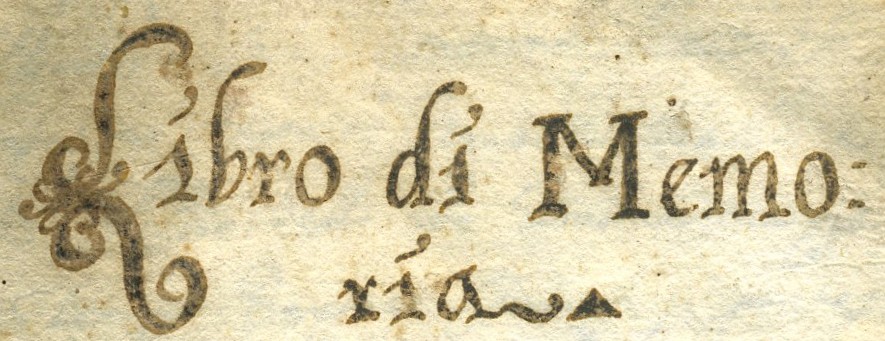 Libro di Memo:
ria